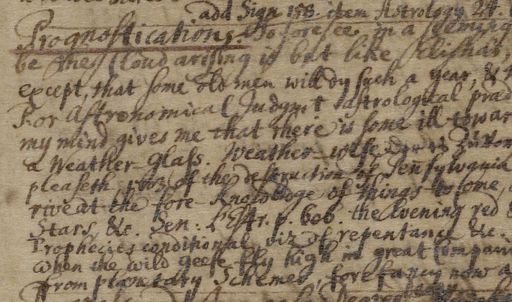 add Sign 158. item Astrology 24.
Prognostications. To foresee in a
be they Cloud arising is but like
except, that some old men will dy such a year, &
For Astronomical Judgmt & astrological
my mind gives me that there is some ill towar
a Weather Glass. Weather-wise
pleaseth, of the destruction of Pensylvania
rive at the fore-knowledge of things to come,
Stars, &c. Sen: L'Estr. p. 606. the Evening red &
Prophecies conditional, viz of repentance &c.
when the wild geese fly high in great compani
from planetary Schemes, forefancy now a